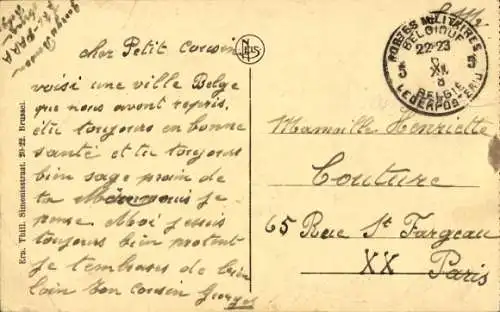 cher Petit cousin
voisi une ville Belge
que nous avont repris.
étu toujours en bonne
santé et tu toujours
bien sage prain de
ta je
pense Moi je suis
toujours bien portent
je t'embrasse de bien
loin ton cousin Georges
Ern. Thill, Simonisstraat, 20-22, Brussel.
NELS
POSTES MILITAIRES
BELGIQUE
22-23
5 5
XII
8
BELGIE
LEGERPOSTERIJ
Mamoille Henriette
Couture
65 Rue St Fargeau
XX Paris